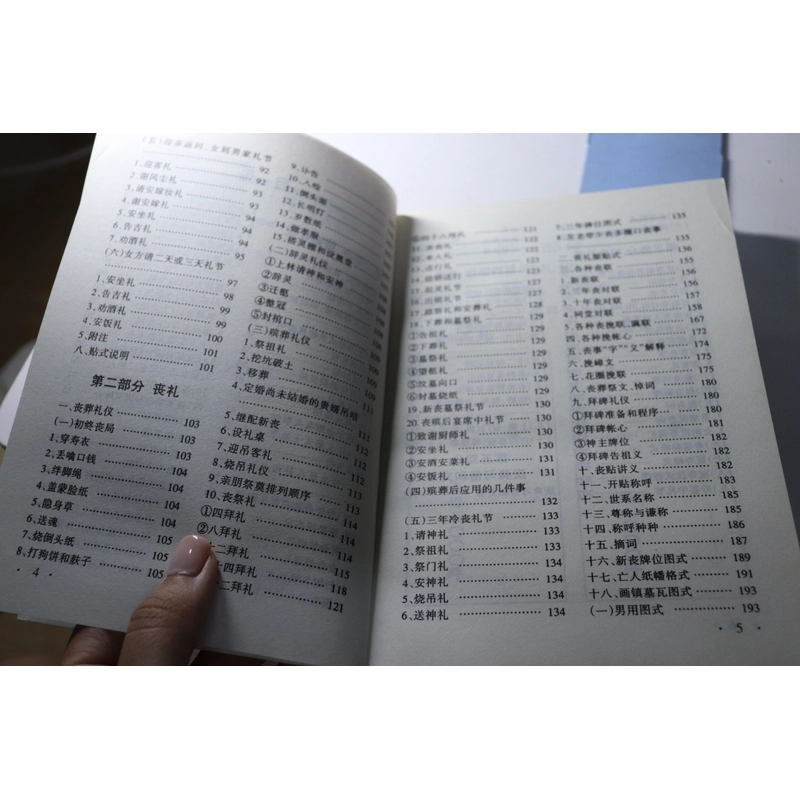 (五)迎亲返回、女到男家礼节
1、迎客礼 92
2、谢风尘礼 92
3、请安嫁妆礼 93
4、谢安嫁礼 94
5、安坐礼 94
6、告吉礼 94
7、劝酒礼 95
(六)女方请二天或三天礼节
1、安坐礼 97
2、告吉礼 98
3、劝酒礼 99
4、安饭礼 100
5、附注 101
八、贴式说明 101
第二部分 丧礼
一、丧葬礼仪 103
(一)初终丧局 103
1、穿寿衣 103
2、丢噙口钱 104
3、绊脚绳 104
4、盖蒙脸纸 104
5、隐身草 104
6、送魂 105
7、烧倒头纸 105
8、打狗饼和鼓子 105
· 4 ·
9、讣告
10、入殓
11、倒头面
12、长明灯
13、岁数纸
14、做孝服
15、搭灵棚和设奠堂
(二)辞灵礼仪
①上林请神和安神
②辞灵
③迁柩
④整冠
⑤封棺口
(三)殡葬礼仪
1、祭祖礼
2、挖坑破土
3、移葬
4、定婚尚未结婚的贵婿吊唁
5、继配新丧 111
6、设礼桌 111
7、迎吊客礼 112
8、烧吊礼仪 112
9、亲朋祭奠排列顺序 113
10、丧祭礼 114
①四拜礼 114
②八拜礼 114
十二拜礼 115
十四拜礼 118
二拜礼 121
121
122
123
16、出殡礼节 127
17、路祭礼和安葬礼 128
18、下葬和墓祭礼 129
①告祖礼 129
②下葬礼 129
③墓祭礼 129
④辞柩礼 129
⑤坟墓向口 129
⑥封墓烧纸 129
19、新丧墓祭礼节 130
20、丧殡后宴席中礼节 130
①致谢厨师礼 130
②安坐礼 130
③安酒安菜礼 131
④安饭礼 131
(四)殡葬后应用的几件事 132
(五)三年冷丧礼节 133
1、请神礼 133
2、祭祖礼 133
3、祭门礼 134
4、安神礼 134
5、烧吊礼 134
6、送神礼 134
7、三年牌位图式 133
135
二、丧礼类贴式 155
一、各种丧联 156
1、新丧联 156
2、三年丧对联 156
3、十年丧对联 156
4、同堂对联 165
5、各种丧挽联、满联 167
四、各种挽帐心 172
五、丧事“字”“义”解释 174
六、挽嶂文 175
七、花圈挽联 175
八、丧葬祭文、悼词 180
九、拜碑礼仪 180
①拜碑准备和程序 180
②拜碑帐心 181
③神主牌位 182
④拜碑告祖义 182
十、丧贴讲义 182
十一、开贴称呼 183
十二、世系名称 185
十三、尊称与谦称 185
十四、称呼种种 186
十五、摘词 187
十六、新丧牌位图式 189
十七、亡人纸幡格式 191
十八、画镇墓瓦图式 193
(一)男用图式 193
· 5 ·